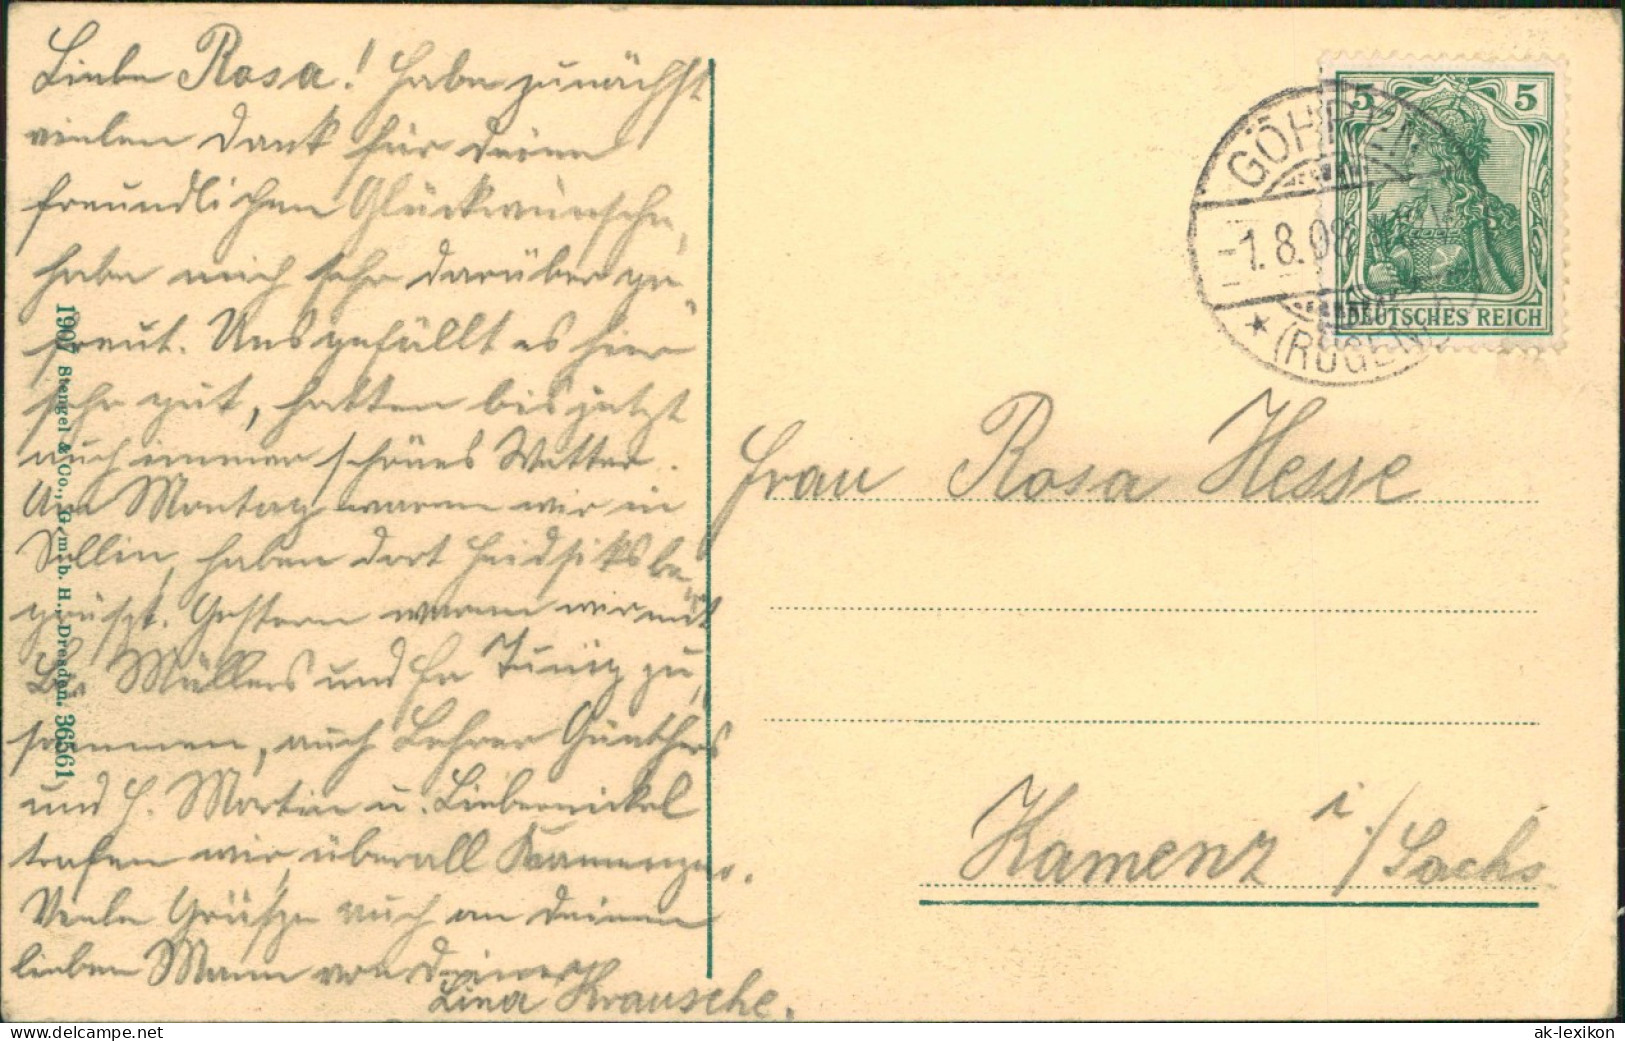 Liebe Rosa! Habe zunächst
vielen Dank für Deine
freundlichen Glückwünsche,
habe mich sehr darüber ge-
freut. Uns gefällt es hier
sehr gut, hatten bis jetzt
auch immer schönes Wetter.
Am Montag waren wir in
Sellin, haben dort be-
grüßt. Gestern waren wir mit
Müllers und zu
sammen, auch Lehrer Günthers
und H. Martin u. Liebernickel
trafen wir, überall Kamenzer.
Viele Grüße auch an Deinen
lieben Mann von Deiner
Lina Krausche.
1907 Stengel & Co., G.m.b.H., Dresden. 36561
5 5
DEUTSCHES REICH
GÖHREN
-1.8.08
* (RÜGEN)
Frau Rosa Hesse
Kamenz i/Sachs.
www.delcampe.net
ak-lexikon